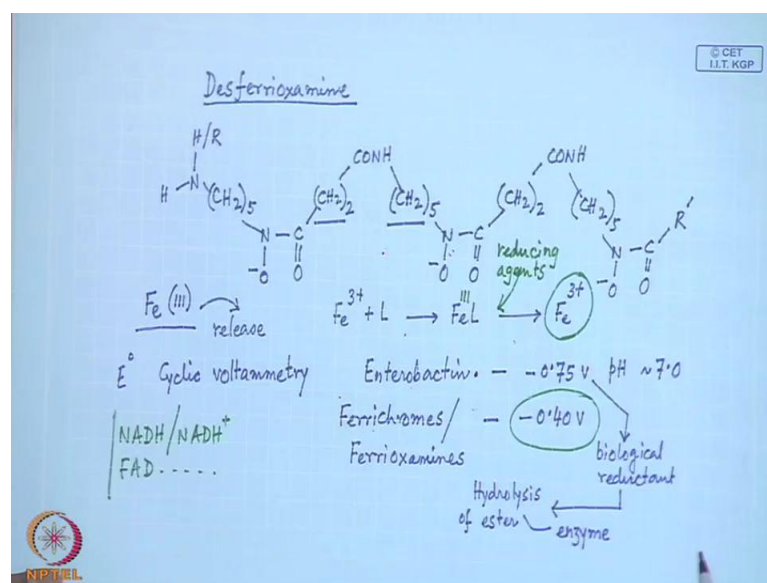 © CET
I.I.T. KGP
Desferrioxamine
H/R
CONH
CONH
H - N (CH2)5 (CH2)2 (CH2)5 (CH2)2 (CH2)5 R'
N - C N - C N - C
-O O -O O -O O
reducing
agents
Fe (III) release
Fe3+ + L → FeIIIL → Fe3+
E° Cyclic voltammetry
Enterobactin. - -0.75 V pH ~7.0
Ferrichromes/ - -0.40 V
Ferrioxamines
NADH/NADH+
FAD.....
biological
reductant
Hydrolysis
of ester enzyme
NPTEL